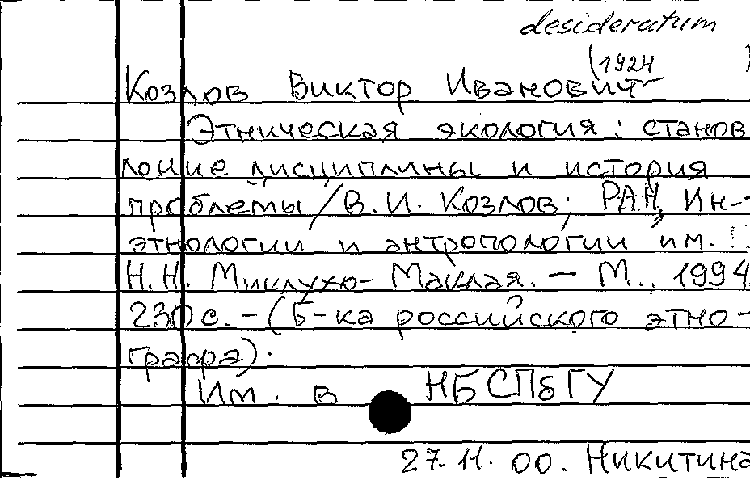 desideratum
(1924
Козлов Виктор Иванович
Этническая экология: станов
ление дисциплины и история
проблемы/В.И. Козлов; РАН, Ин-
этнологии и антропологии им.
Н.Н. Миклухо-Маклая. – М., 1994
230 с. – (Б-ка российского этно-
графа).
Им. в НБ СПбГУ
27.11.00. Никитина